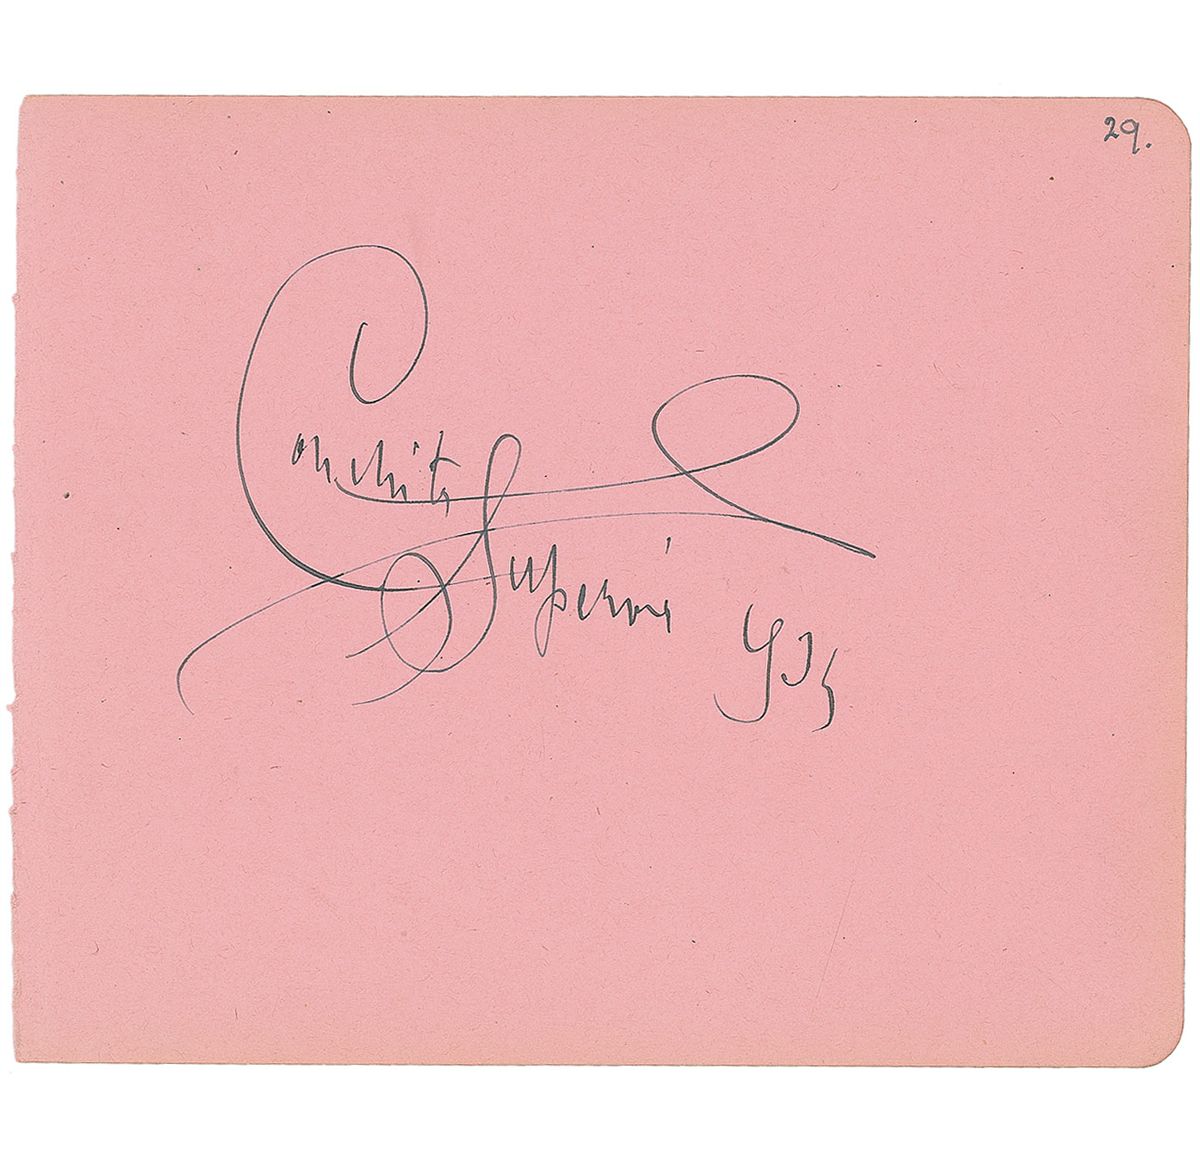 29.
Conchita
Supervia 935